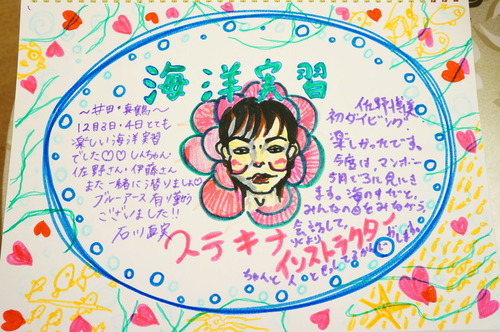 海洋実習
〜井田・真鶴〜
12月3日・4日とても
楽しい海洋実習
でした♡♡しんちゃん
佐野さん・伊藤さん
また一緒に潜りましょ♡
ブルーアース有り難う
ございました!!
石川真実
佐野
初ダイビング
楽しかったです。
今度は、マンボー
5月ごろに見にき
ます。海の中だと、
みんなの目をみながら
会話して、
ステキナ
インストラクター
ちゃんと